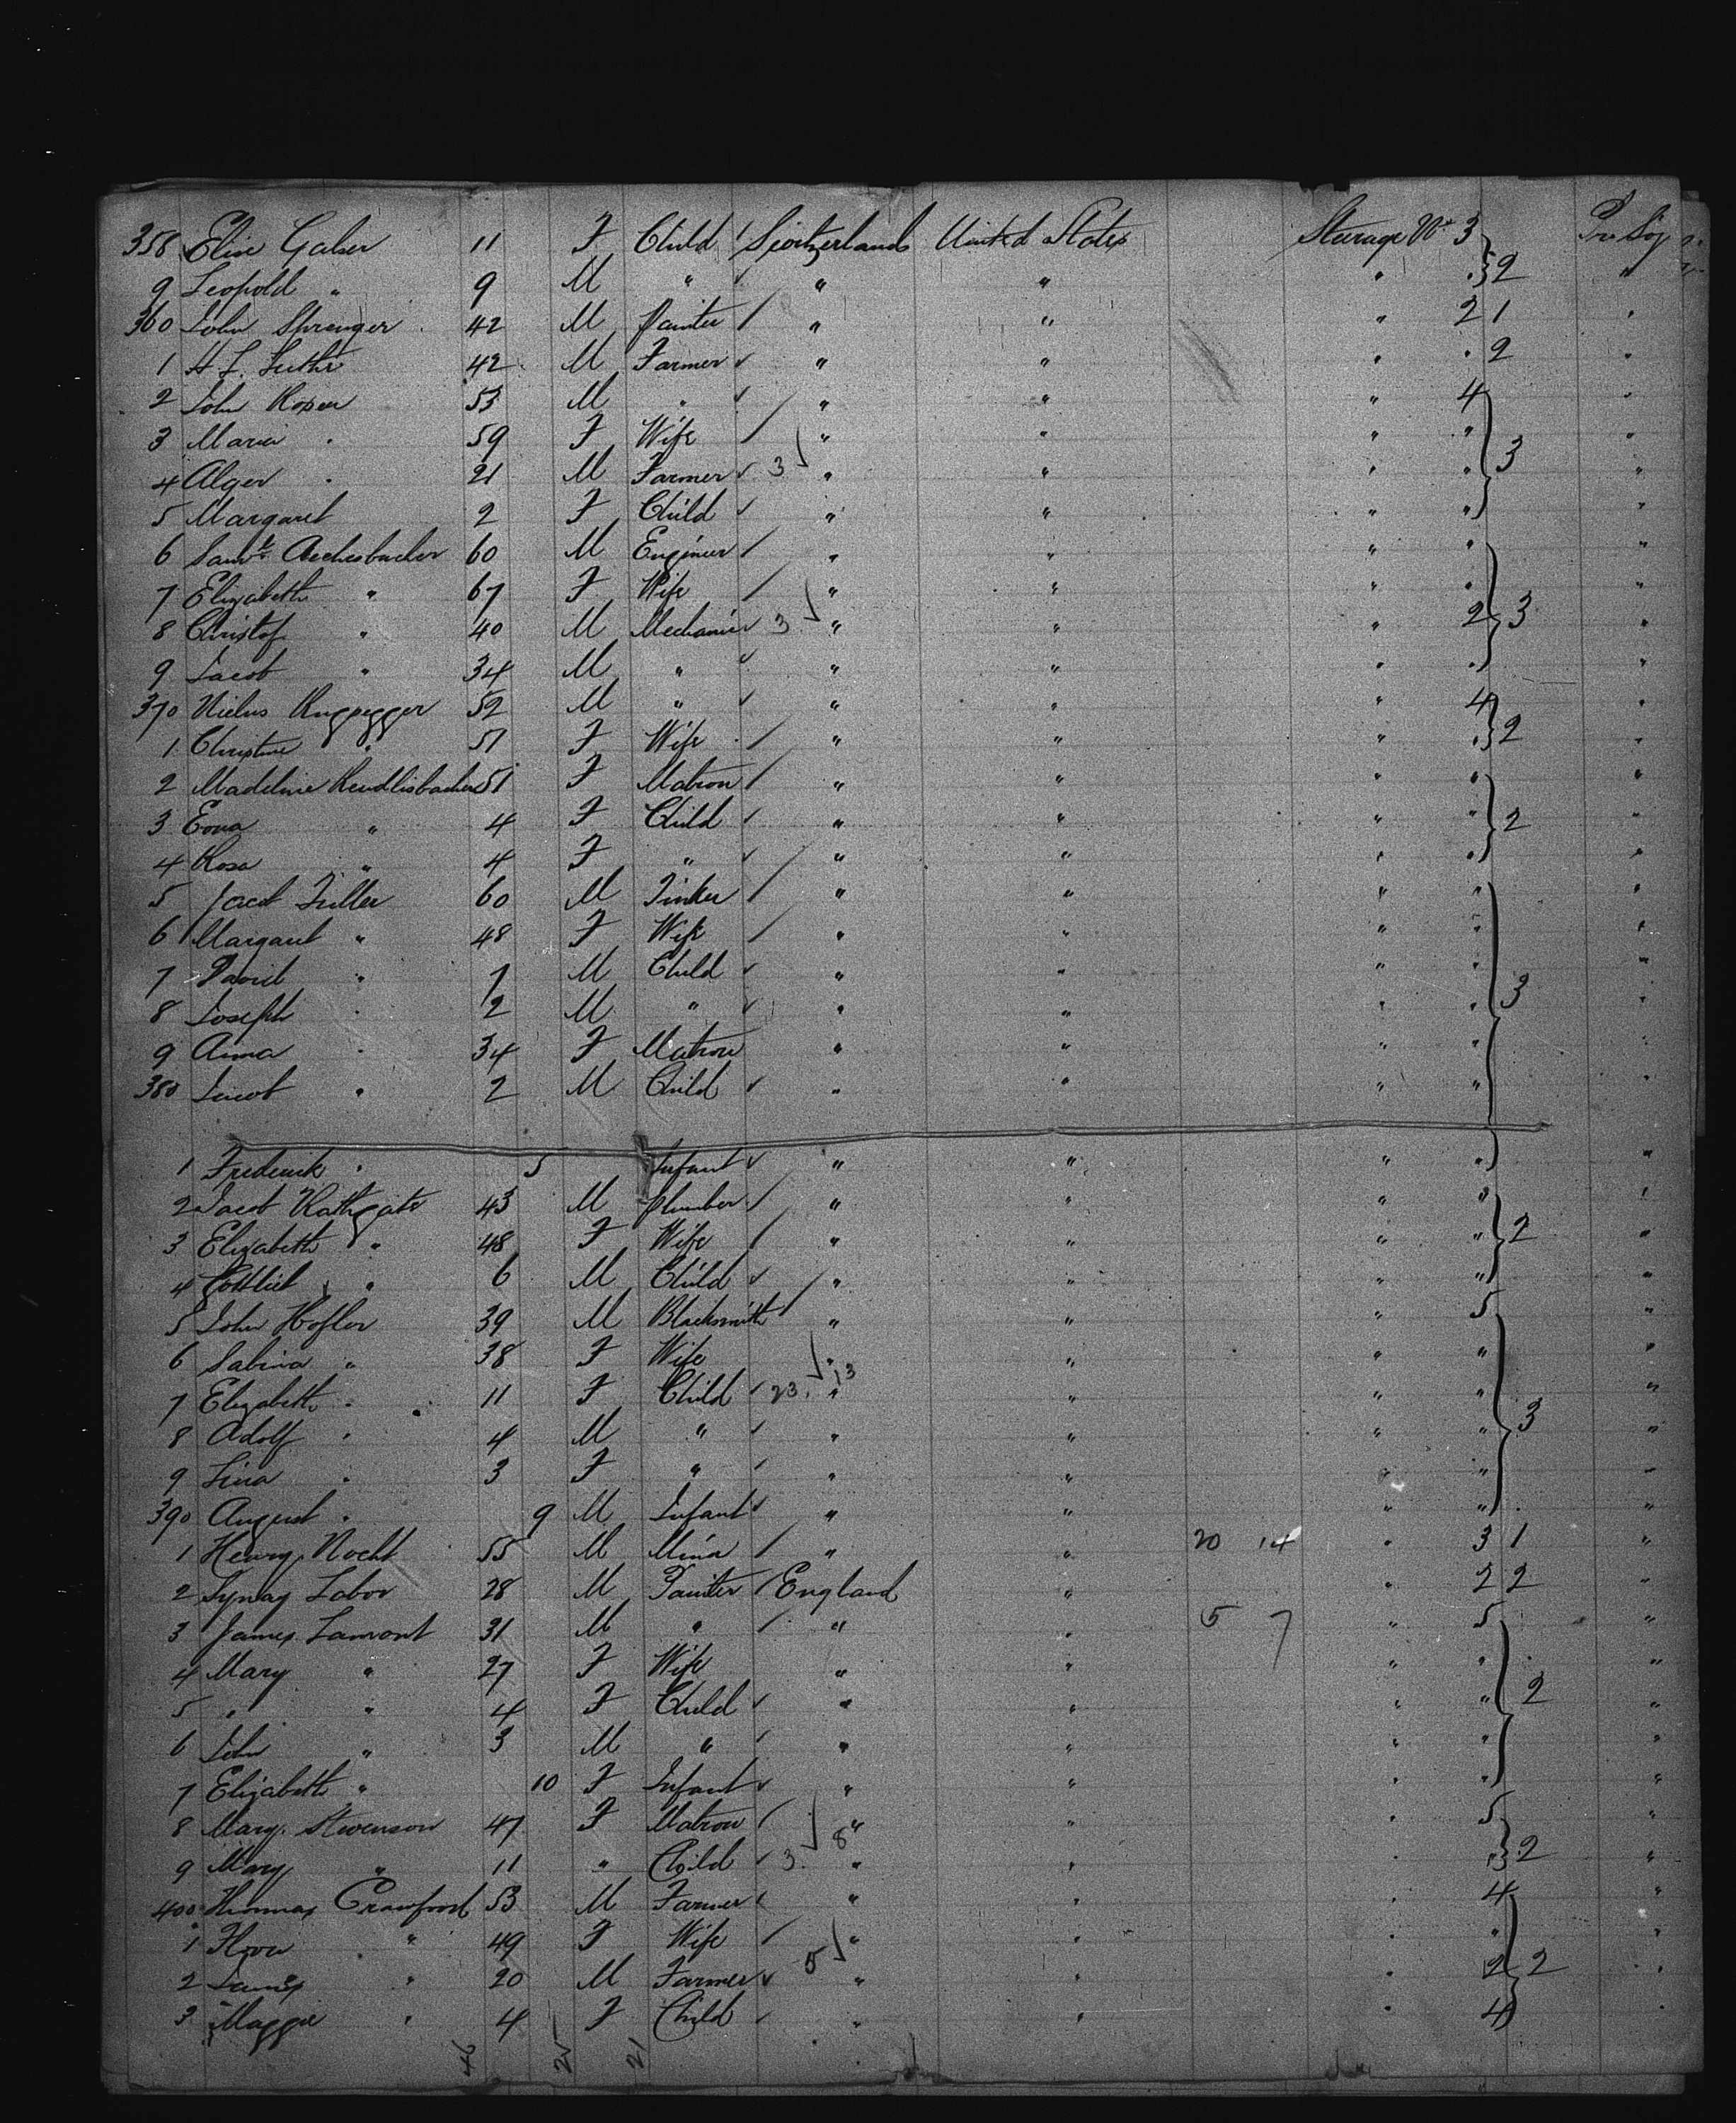 358 Elise Galser 11 F Child Switzerland United States Sturage No 3 Pro Sog
9 Leopold " 9 M " " " " " 2 "
360 John Sprenger 42 M Painter " " " 2 1 "
1 H L Luthi 42 M Farmer " " " " 2 "
2 John Roser 53 M " " " " 4 "
3 Maria " 59 F Wife " " " " "
4 Alger " 21 M Farmer 3 " " " " 3 "
5 Margaret 2 F Child " " " " "
6 Saml Aechesbacher 60 M Engineer " " " " "
7 Elizabeth " 67 F Wife " " " " "
8 Christof " 40 M Mechanic 3 " " " 2 3 "
9 Jacob " 34 M " " " " " "
370 Rugsegger 52 M " " " " 4 "
1 Christine " 51 F Wife " " " " 2 "
2 Madeline 51 F Matron " " " " "
3 " 4 F Child " " " " 2 "
4 Rosa " 4 F " " " " " "
5 Jacob Zuller 60 M Tinker " " " " "
6 Margaret " 48 F Wife " " " " "
7 David " 7 M Child " " " " "
8 Joseph " 2 M " " " " " 3 "
9 Anna " 34 F Matron " " " " "
380 Jacob " 2 M Child " " " " "
1 Frederick " 5 Infant " " " " "
2 Jacob Rathgate 43 M Plumber " " " " "
3 Elizabeth " 48 F Wife " " " " 2 "
4 Gottlieb " 6 M Child " " " " "
5 John Hofler 39 M Blacksmith " " " 5 "
6 Sabina " 38 F Wife " " " " "
7 Elizabeth " 11 F Child 23 13 " " " " "
8 Adolf " 4 M " " " " " 3 "
9 Lina " 3 F " " " " " "
390 August " 9 M Infant " " " " "
1 Henry Nocht 55 M " " 20 14 " 3 1 "
2 Labor 28 M Painter England " " 2 2 "
3 James Lamont 31 M " " " 5 7 " 5 "
4 Mary " 27 F Wife " " " " "
5 " " 4 F Child " " " " 2 "
6 John " 3 M " " " " " "
7 Elizabeth " 10 F Infant " " " " "
8 Mary Stevenson 47 F Matron " " " 5 "
9 Mary " 11 " Child 3 8 " " " " 2 "
400 Thomas Crawford 53 M Farmer " " " 4 "
1 " 49 F Wife " " " " "
2 James " 20 M Farmer 5 " " " 2 2 "
3 Maggie " 4 F Child " " " 4 "
46 25 21